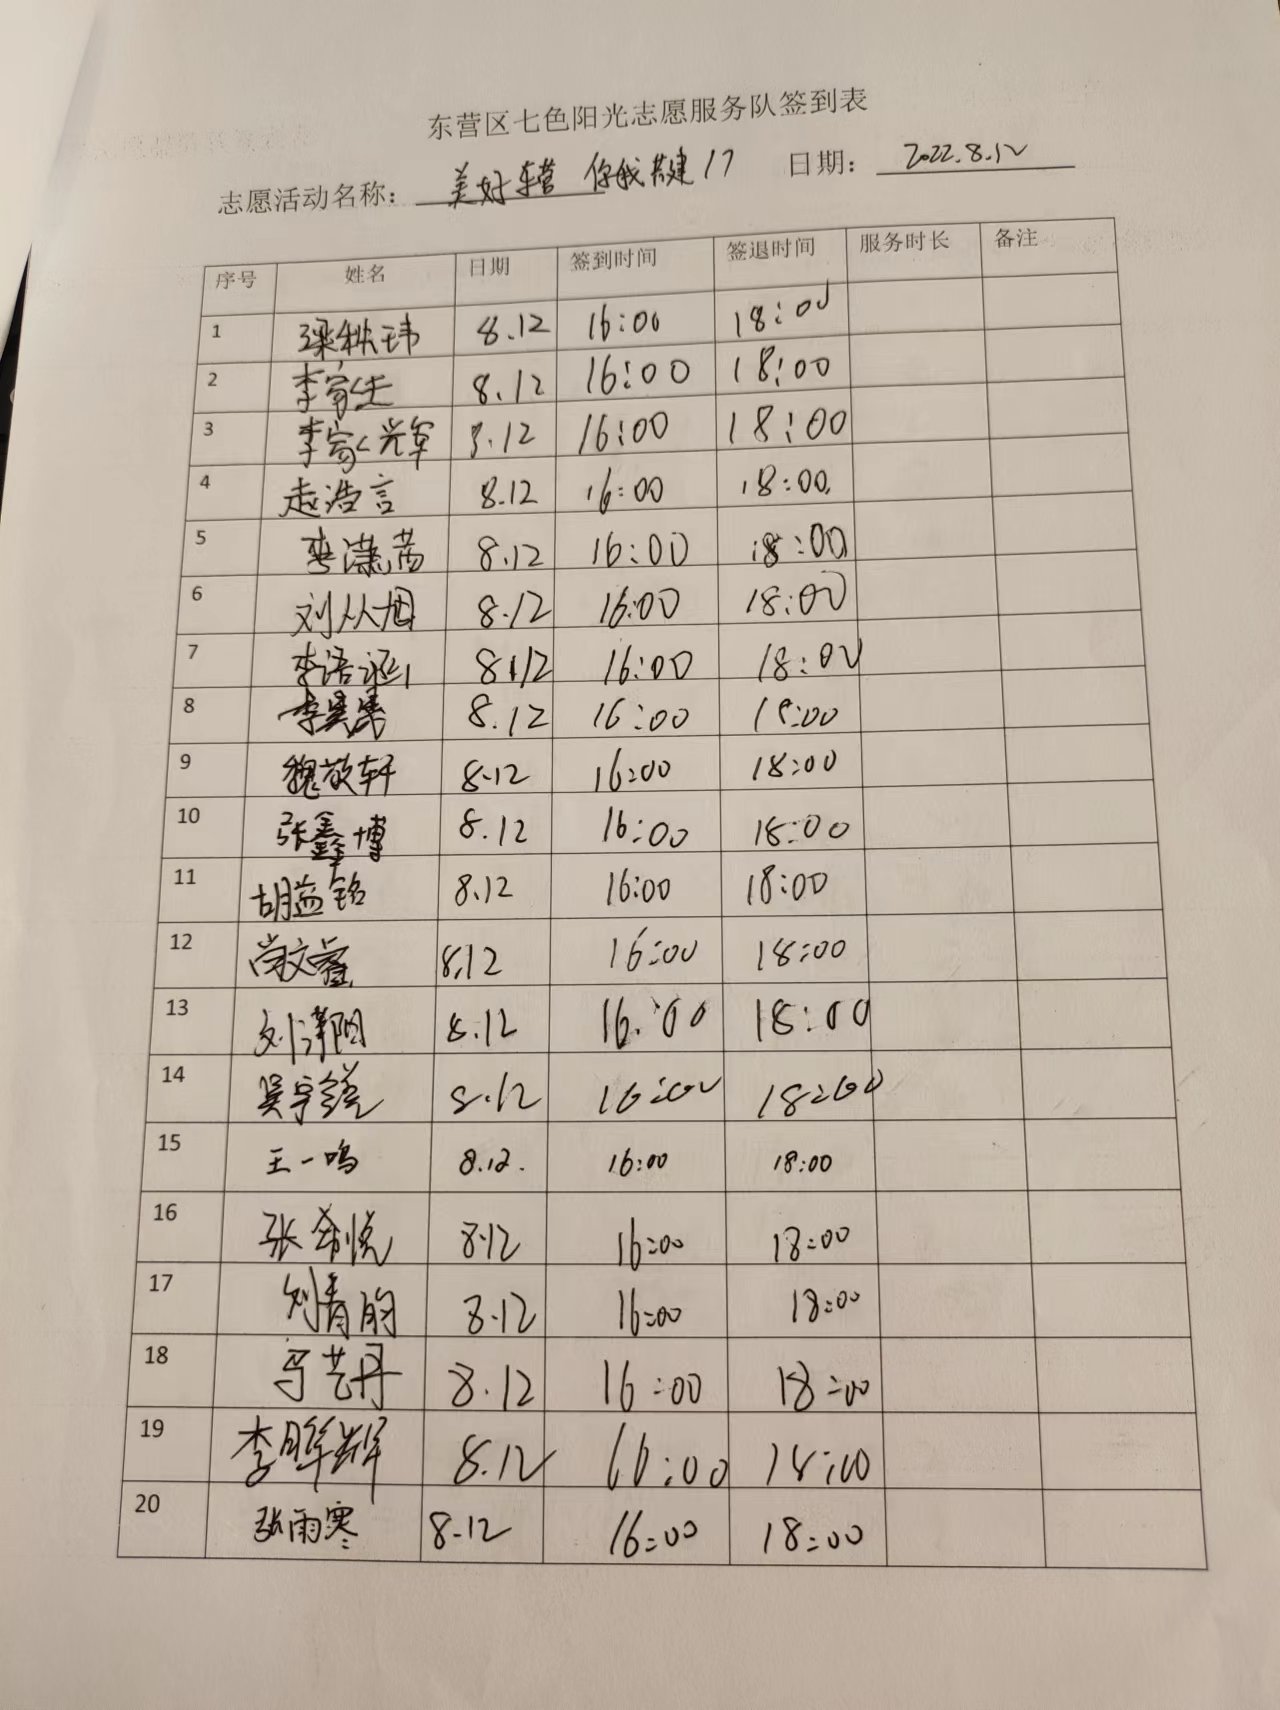 东营区七色阳光志愿服务队签到表
志愿活动名称： 美好东营 你我共建 17 日期： 2022.8.12
序号 姓名 日期 签到时间 签退时间 服务时长 备注
1 梁秩玮 8.12 16:00 18:00
2 李家 8.12 16:00 18:00
3 李家 8.12 16:00 18:00
4 赵浩言 8.12 16:00 18:00
5 李潇茜 8.12 16:00 18:00
6 刘从旭 8.12 16:00 18:00
7 李语涵 8.12 16:00 18:00
8 李昊 8.12 16:00 18:00
9 魏敬轩 8.12 16:00 18:00
10 张鑫博 8.12 16:00 18:00
11 胡益铭 8.12 16:00 18:00
12 尚文鑫 8.12 16:00 18:00
13 刘泽阳 8.12 16:00 18:00
14 吴宇 8.12 16:00 18:00
15 王一鸣 8.12. 16:00 18:00
16 张希悦 8.12 16:00 18:00
17 刘青昀 8.12 16:00 18:00
18 马艺丹 8.12 16:00 18:00
19 李晖辉 8.12 16:00 18:00
20 张雨寒 8.12 16:00 18:00